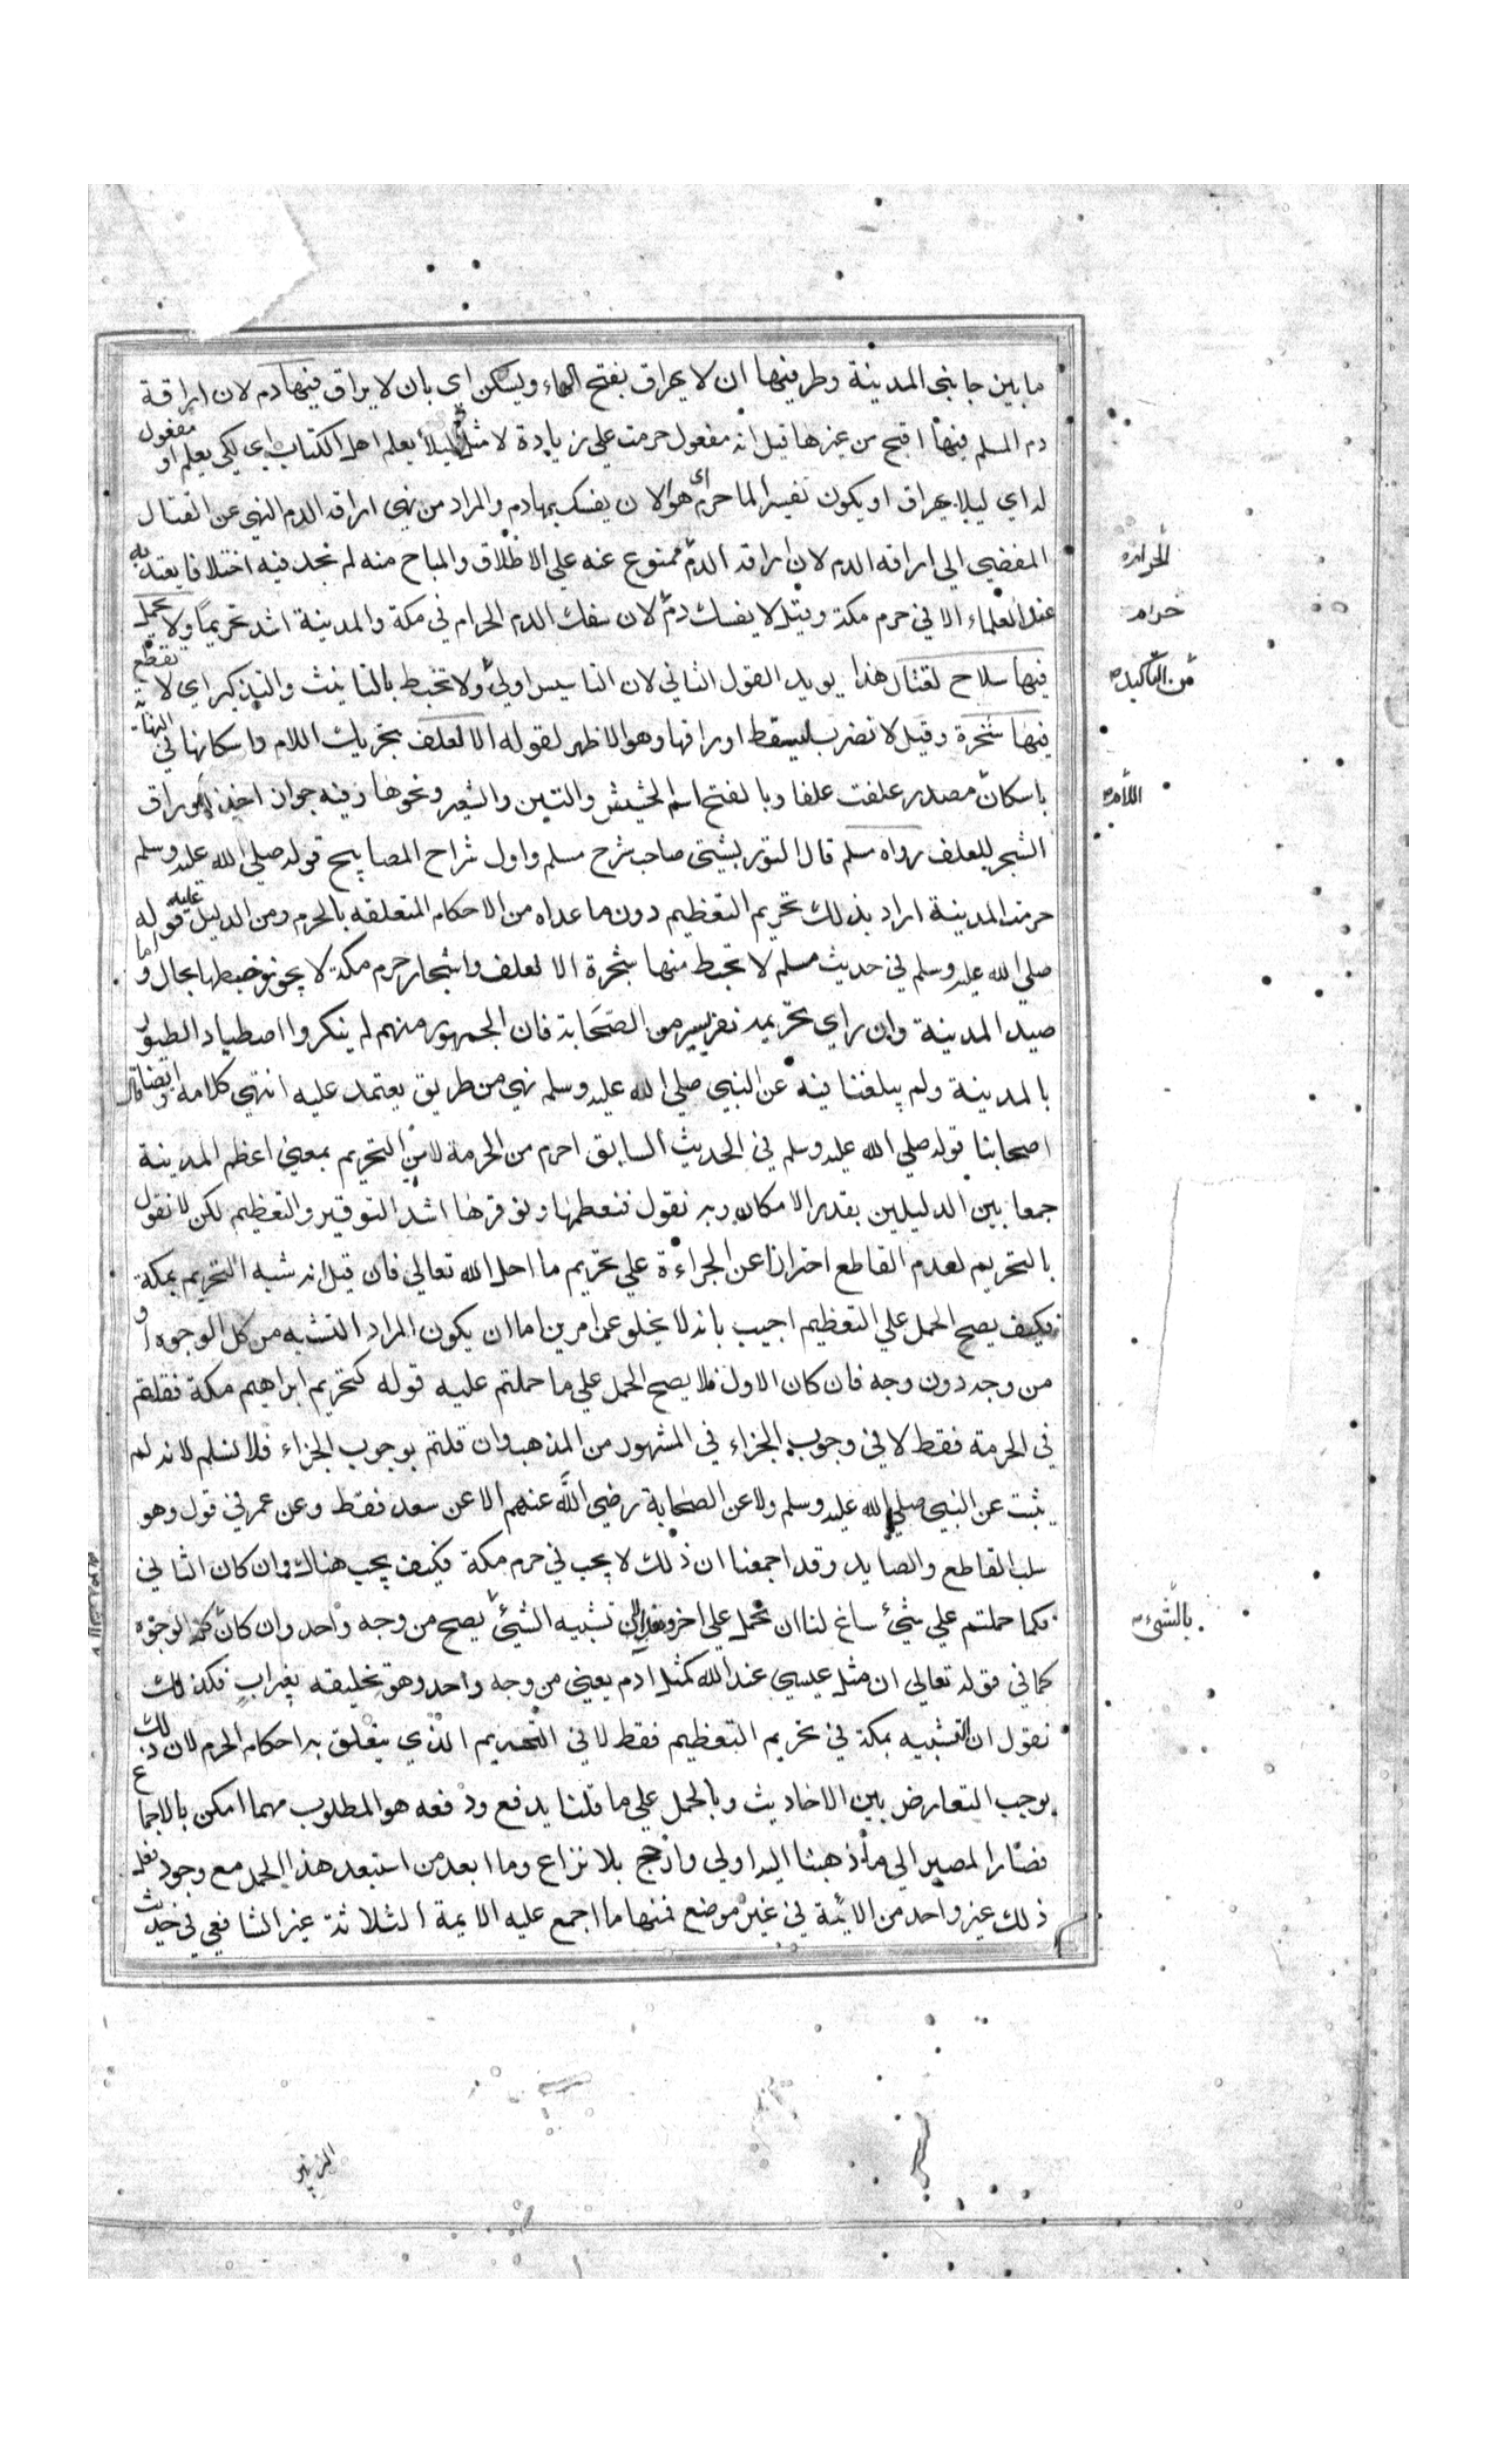 ما بين جانبي المدينة وطرفيها ان لا يهراق بفتح الهاء ويسكن اي بان لا يراق فيها دم لان اراقة
دم المسلم فيها اقبح من غيرها قيل انه مفعول حرمت علي زيادة لا مثل ليلا يعلم اهل الكتاب اي لكي يعلم او مفعول
له اي ليلا يهراق او يكون تفسيرا لما حرم اي هو الا ان يفسك بها دم والمراد من نهي اراقة الدم النهي عن القتال
المفضي الي اراقة الدم لان اراقة الدم ممنوع عنه علي الاطلاق والمباح منه لم نجد فيه اختلافا يعتد به
الحرام
عند العلماء الا في حرم مكة وقيل لا يفسك دم لان سفك الدم الحرام في مكة والمدينة اشد تحريما ولا يحمل
حرام
فيها سلاح لقتال هذا يويد القول الثاني لان التاسيس اولي ولا تخبط بالتانيث والتذكير اي لا تقطع
من التاكيد
فيها شجرة وقيل لا تضرب ليسقط اوراقها وهو الاظهر لقوله الا لعلف بتحريك اللام واسكانها في النهاية
باسكان مصدر علفت علفا وبالفتح اسم الحشيش والتبن والشعير ونحوها وفيه جواز اخذ اوراق
اللام
الشجر للعلف رواه مسلم قال التوربشتي صاحب شرح مسلم واول شراح المصابيح قوله صلي الله عليه وسلم
حرمت المدينة اراد بذلك تحريم التعظيم دون ما عداه من الاحكام المتعلقة بالحرم ومن الدليل عليه قوله
صلي الله عليه وسلم في حديث مسلم لا تخبط منها شجرة الا لعلف واشجار حرم مكة لا يجوز خبطها بحال واما
صيد المدينة وان راي تحريمه نفر يسير من الصحابة فان الجمهور منهم لم ينكروا اصطياد الطيور
بالمدينة ولم يبلغنا فيه عن النبي صلي الله عليه وسلم نهي من طريق يعتمد عليه انتهي كلامه وقال ايضا
اصحابنا قوله صلي الله عليه وسلم في الحديث السابق احرم من الحرمة لا من التحريم بمعني اعظم المدينة
جمعا بين الدليلين بقدر الامكان وبه نقول فنعظمها ونوقرها اشد التوقير والتعظيم لكن لا نقول
بالتحريم لعدم القاطع احترازا عن الجراءة علي تحريم ما احل الله تعالي فان قيل انه شبه التحريم بمكة
فكيف يصح الحمل علي التعظيم اجيب بانه لا يخلو عن امرين اما ان يكون المراد التشبه من كل الوجوه او
من وجه دون وجه فان كان الاول فلا يصح الحمل علي ما حملتم عليه قوله كتحريم ابراهيم مكة فقلتم
في الحرمة فقط لا في وجوب الجزاء في المشهور من المذهب وان قلتم بوجوب الجزاء فلا نسلم لانه لم
يثبت عن النبي صلي الله عليه وسلم ولا عن الصحابة رضي الله عنهم الا عن سعد فقط وعن عمر في قول وهو
سلب القاطع والصايد وقد اجمعنا ان ذلك لا يجب في حرم مكة فكيف يجب هناك وان كان الثاني
فكما حملتم علي شيء ساغ لنا ان نحمل علي اخر تشبيه الشيء يصح من وجه واحد وان كان الوجوه
بالشيء
كما في قوله تعالي ان مثل عيسي عند الله كمثل ادم يعني من وجه واحد وهو تخليقه بغير اب فكذلك
نقول ان التشبيه بمكة في تحريم التعظيم فقط لا في التحريم الذي يتعلق به احكام الحرم لان ذلك
يوجب التعارض بين الاحاديث وبالحمل علي ما قلنا يدفع ودفعه هو المطلوب مهما امكن بالاجماع
فصار المصير الي ما ذهبنا اليه اولي وارجح بلا نزاع وما ابعد من استبعد هذا الحمل مع وجود نقل
ذلك عن غير واحد من الايمة في غير موضع فمنها ما اجمع عليه الايمة الثلاثة غير الشافعي في حديث